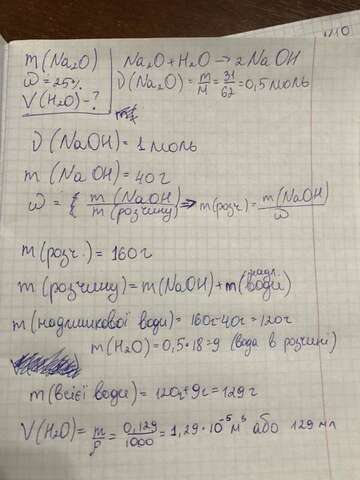 m(Na₂O)
ω = 25%
V(H₂O) - ?
Na₂O + H₂O → 2NaOH
ν(Na₂O) = m/M = 31/62 = 0,5 моль
ν(NaOH) = 1 моль
m(NaOH) = 40г
ω = m(NaOH)/m(розчину) ⇒ m(розч.) = m(NaOH)/ω
m(розч.) = 160г
m(розчину) = m(NaOH) + m(надл. води)
m(надлишкової води) = 160г - 40г = 120г
m(H₂O) = 0,5 · 18 = 9 (вода в розчині)
m(всієї води) = 120г + 9г = 129г
V(H₂O) = m/ρ = 0,129/1000 = 1,29 · 10⁻⁵ м³ або 129 мл